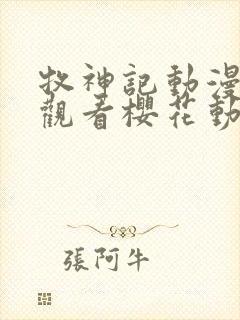 牧神記動漫
觀看櫻花動
張阿牛